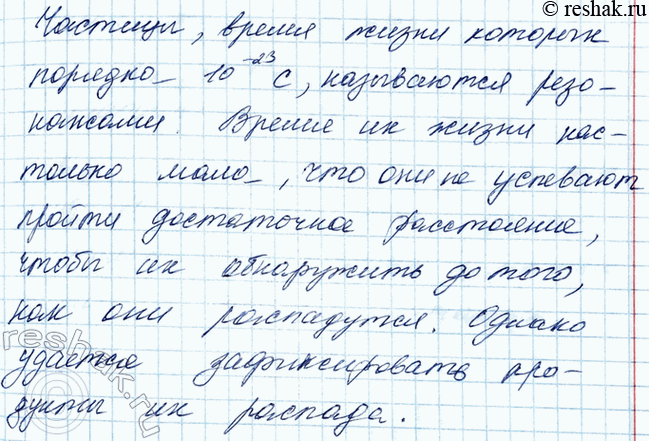 © reshak.ru
Частицы, время жизни которых
порядка 10⁻²³ с, называются резо-
нансами. Время их жизни нас-
только мало, что они не успевают
пройти достаточное расстояние,
чтобы их обнаружить до того,
как они распадутся. Однако
удается зафиксировать про-
дукты их распада.
reshak.ru